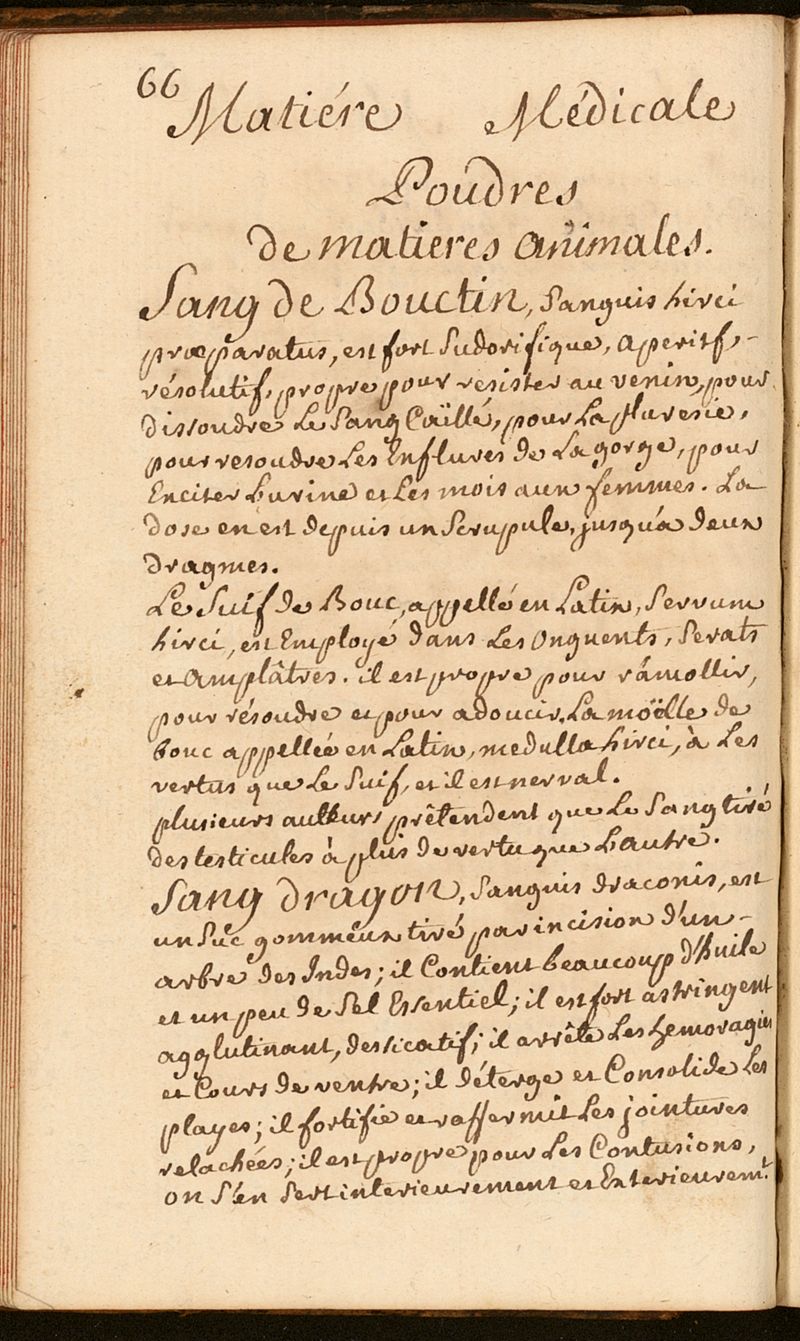 66
Matiére Médicale
Poudres
de matieres animales.
Sang de Bouctin, Sanguis hirci
præparatus, est fort Sudorifique, aperitf,-
résolutif, propre pour resister au venin, pour
dissoudre le Sang Caïllé, pour La pluresie,
pour resoudre Les Enflures de La gorge, pour
Exciter L'urine et Les mois aux femmes. La
dose en est depuis un Scrupule, jusqu'a deux
dragmes.
Le Suif de Bouc, appellé en Latin, Sevum
hirci, est Employé dans Les Onguents, Serats
et amplâtres. il est propre pour râmollir,
pour résoudre et pour adoucir. La moëlle de
bouc appellée en Latin, medulla hirci, à Les
vertus que Le Suif, et il est nerval.
plusieurs autteurs prêtendent que Le Sang tiré
des testicules à plus de vertu que L'autre.
Sang dragon, Sanguis draconis, est
un Suc gommeux tiré par incision d'un-
arbre des Indes; il Contient beaucoup d'huile
et un peu de Sel Essentiel; il est fort astringent
agglutinant, dessicatif; il arrête Les hemoragies
et Cours de ventre; il déterge et Consolide Les
playes; il fortifie et raffermit Les jointures
relachées; il est propre pour Les Contusions,
on S'en Sert interieurement et Exterieurem.t